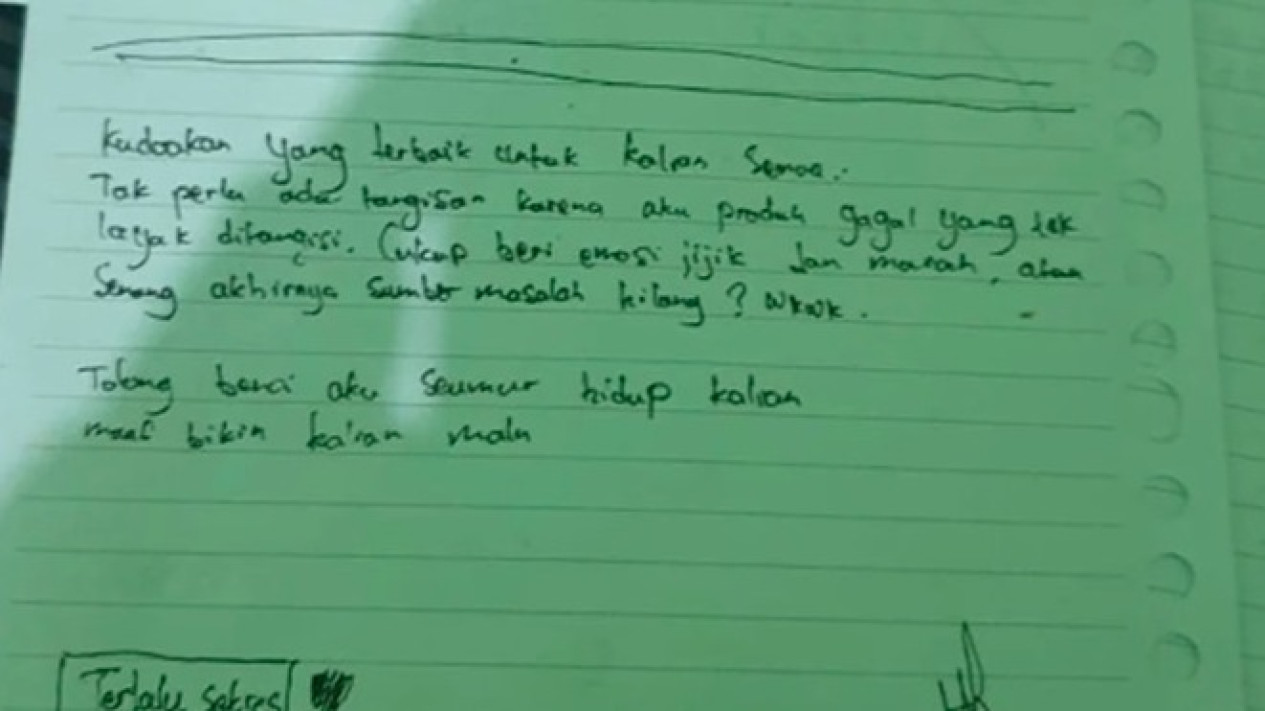 Kudoakan yang terbaik untuk kalian semoa.
Tak perlu ada tangisan karena aku produk gagal yang tak
layak ditangisi. Cukup beri emosi jijik dan marah, atau
Senang akhirnya sumber masalah hilang? wkwk.
Tolong benci aku seumur hidup kalian
maaf bikin kalian malu
Terlalu